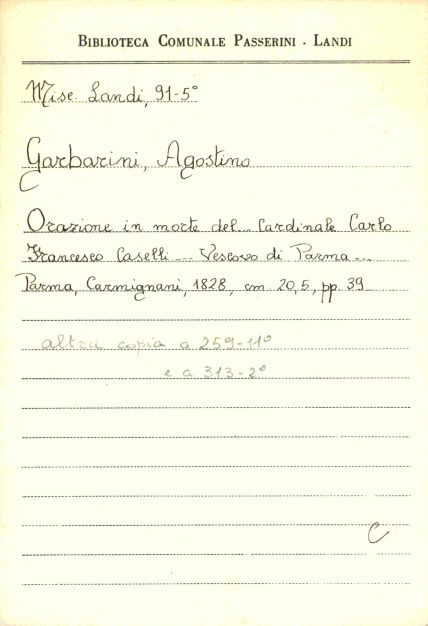 BIBLIOTECA COMUNALE PASSERINI - LANDI
Misc. Landi, 91-5°
Garbarini, Agostino
Orazione in morte del... Cardinale Carlo
Francesco Caselli ... Vescovo di Parma ...
Parma, Carmignani, 1828, cm 20,5, pp. 39
altra copia a 259-11°
e a 313-2°
C